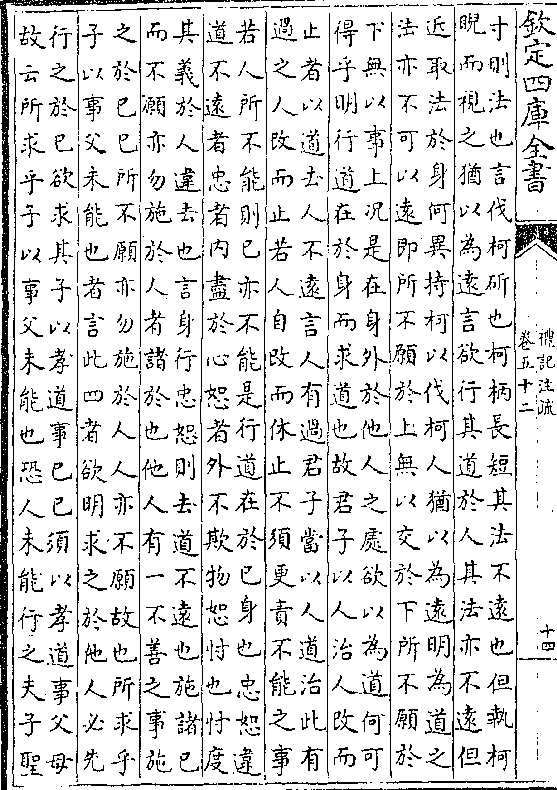 欽定四庫全書
禮記注疏
卷五十二
十四
寸則法也言伐柯斫也柯柄長短其法不遠也但執柯
睨而視之猶以為遠言欲行其道於人其法亦不遠但
近取法於身何異持柯以伐柯人猶以為遠明為道之
法亦不可以遠即所不願於上無以交於下所不願於
下無以事上況是在身外於他人之處欲以為道何可
得乎明行道在於身而求道也故君子以人治人改而
止者以道去人不遠言人有過君子當以人道治此有
過之人改而止若人自改而休止不須更責不能之事
若人所不能則已亦不能是行道在於已身也忠恕違
道不遠者忠者內盡於心恕者外不欺物恕忖也忖度
其義於人違去也言身行忠恕則去道不遠也施諸已
而不願亦勿施於人者諸於也他人有一不善之事施
之於已已所不願亦勿施於人人亦不願故也所求乎
子以事父未能也者言此四者欲明求之於他人必先
行之於已欲求其子以孝道事已已須以孝道事父母
故云所求乎子以事父未能也恐人未能行之夫子聖